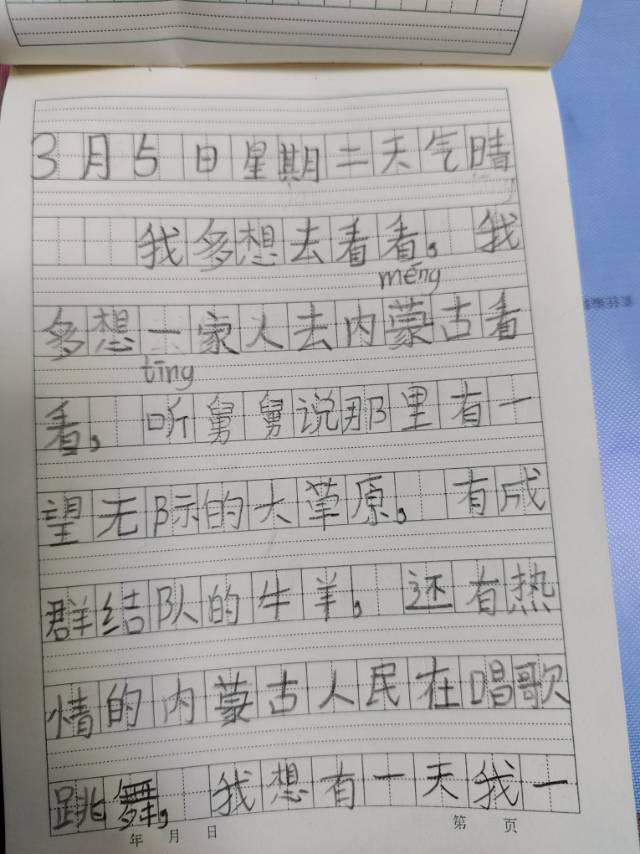 3月5日星期二天气晴
我多想去看看，我
méng
多想一家人去内蒙古看
tīng
看，听舅舅说那里有一
望无际的大草原，有成
群结队的牛羊，还有热
情的内蒙古人民在唱歌
跳舞，我想有一天我一
年 月 日 第 页